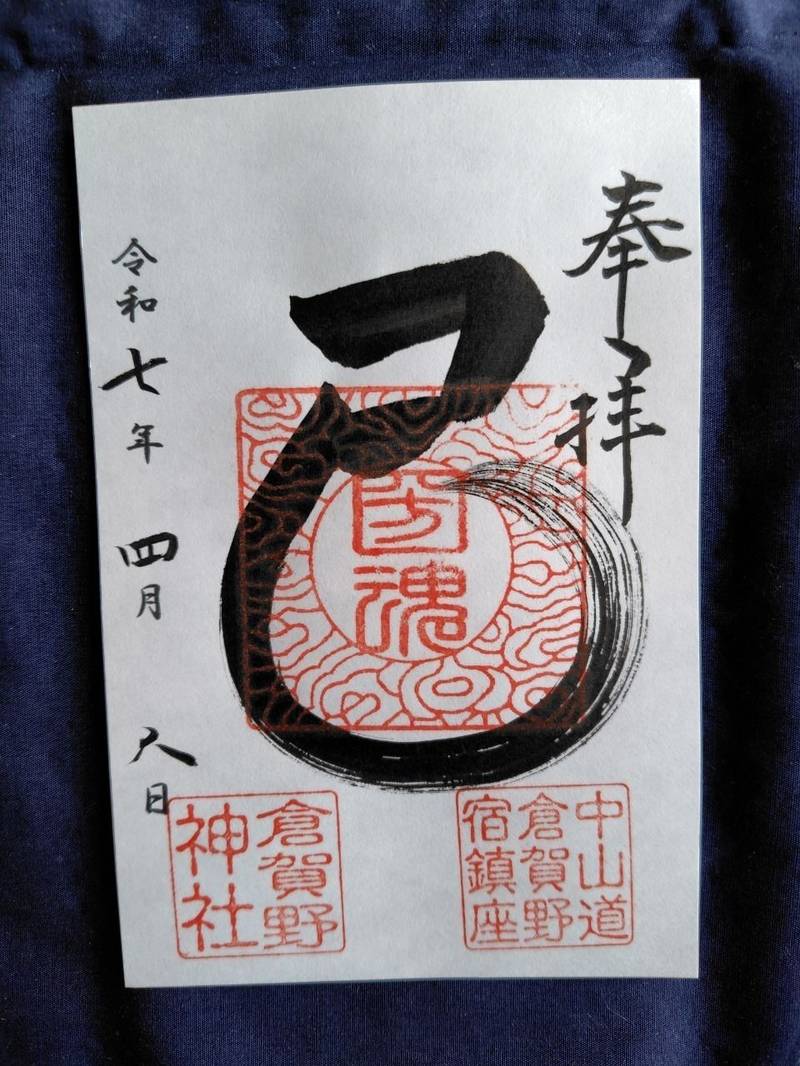 奉拝
巳
国魂
中山道
倉賀野
宿鎮座
令和七年 四月 八日
倉賀野
神社